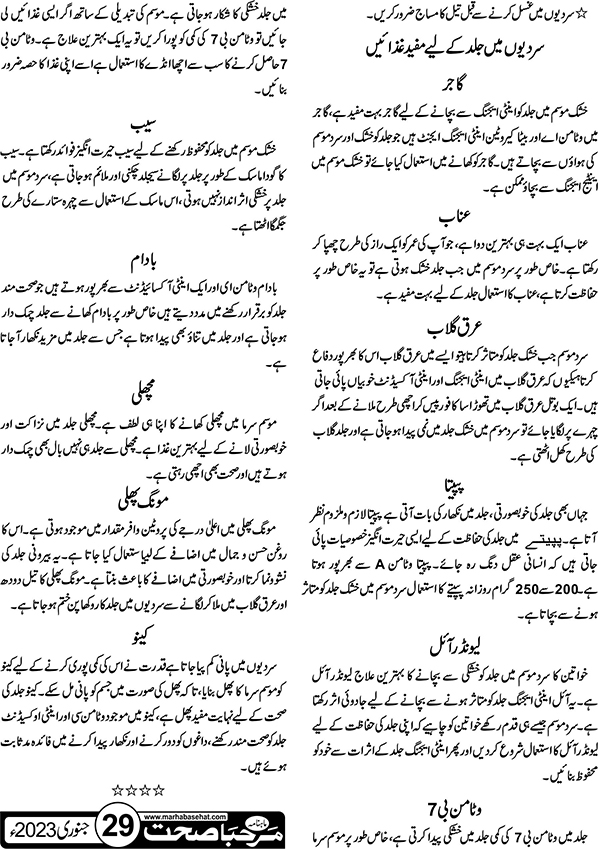 ☆ سردیوں میں غسل کرنے سے قبل تیل کا مساج ضرور کریں۔
سردیوں میں جلد کے لیے مفید غذائیں
گاجر
خشک موسم میں جلد کو اینٹی ایجنگ سے بچانے کے لیے گاجر بہت مفید ہے، گاجر
میں وٹامن اے اور بیٹا کیروٹین اینٹی ایجنگ ایجنٹ ہیں جو جلد کو خشک اور سرد موسم
کی ہواؤں سے بچاتے ہیں۔ گاجر کو کھانے میں استعمال کیا جائے تو خشک موسم میں
اینٹیج ایجنگ سے بچاؤ ممکن ہے۔
عناب
عناب ایک بہت ہی بہترین دوا ہے، جو آپ کی عمر کو ایک راز کی طرح چھپا کر
رکھتا ہے۔ خاص طور پر سرد موسم میں جب جلد خشک ہوتی ہے تو یہ خاص طور پر
حفاظت کرتا ہے، عناب کا استعمال جلد کے لیے بہت مفید ہے۔
عرق گلاب
سرد موسم جب خشک جلد کو متاثر کرتا ہتو ایسے میں عرق گلاب اس کا بھرپور دفاع
کرتا ہیکیوں کہ عرق گلاب میں اینٹی ایجنگ اور اینٹی آکسیڈنٹ خوبیاں پائی جاتی
ہیں۔ ایک بوتل عرق گلاب میں تھوڑا سا کافور پیس کر اچھی طرح ملانے کے بعد اگر
چہرے پر لگایا جائے تو سرد موسم میں خشک جلد میں نمی پیدا ہو جاتی ہے اور جلد گلاب
کی طرح کھل اٹھتی ہے۔
پپیتا
جہاں بھی جلد کی خوبصورتی، جلد میں نکھار کی بات آتی ہے پپیتا لازم و ملزوم نظر
آتا ہے۔ پپیتے میں جلد کی حفاظت کے لیے ایسی حیرت انگیز خصوصیات پائی
جاتی ہیں کہ انسانی عقل دنگ رہ جائے۔ پپیتا وٹامن A سے بھرپور ہوتا
ہے۔200 سے 250 گرام روزانہ پپیتے کا استعمال سرد موسم میں خشک جلد کو متاثر
ہونے سے بچاتا ہے۔
لیونڈر آئل
خواتین کا سرد موسم میں جلد کو خشکی سے بچانے کا بہترین علاج لیونڈر آئل
ہے۔ یہ آئل اینٹی ایجنگ جلد کو متاثر ہونے سے بچانے کے لیے جادوئی اثر رکھتا
ہے۔ سرد موسم جیسے ہی قدم رکھے خواتین کو چاہیے کہ اپنی جلد کی حفاظت کے لیے
لیونڈر آئل کا استعمال شروع کر دیں اور پھر اینٹی ایجنگ جلد کے اثرات سے خود کو
محفوظ بنائیں۔
وٹامن بی 7
جلد میں وٹامن بی 7 کی کمی جلد میں خشکی پیدا کرتی ہے، خاص طور پر موسم سرما
میں جلد خشکی کا شکار ہو جاتی ہے۔ موسم کی تبدیلی کے ساتھ اگر ایسی غذائیں لی
جائیں تو وٹامن بی 7 کی کمی کو پورا کریں تو یہ ایک بہترین علاج ہے۔ وٹامن بی
7 حاصل کرنے کا سب سے اچھا انڈے کا استعمال ہے اسے اپنی غذا کا حصہ ضرور
بنائیں۔
سیب
خشک موسم میں جلد کو محفوظ رکھنے کے لیے سیب حیرت انگیز فوائد رکھتا ہے۔ سیب
کا گودا ماسک کے طور پر جلد پر لگانے سیجلد چکنی اور ملائم ہو جاتی ہے، سرد موسم میں
جلد پر خشکی اثر انداز نہیں ہوتی، اس ماسک کے استعمال سے چہرہ ستارے کی طرح
جگمگا اٹھتا ہے۔
بادام
بادام وٹامن ای اور ایک اینٹی آکسائیڈنٹ سے بھرپور ہوتے ہیں جو صحت مند
جلد کو برقرار رکھنے میں مدد دیتے ہیں خاص طور پر بادام کھانے سے جلد چمک دار
ہو جاتی ہے اور جلد میں تناؤ بھی پیدا ہوتا ہے جس سے جلد میں مزید نکھار آ جاتا
ہے۔
مچھلی
موسم سرما میں مچھلی کھانے کا اپنا ہی لطف ہے۔ مچھلی جلد میں نزاکت اور
خوبصورتی لانے کے لیے بہترین غذا ہے۔ مچھلی سے جلد ہی نہیں بال بھی چمک دار
ہوتے ہیں اور صحت بھی اچھی رہتی ہے۔
مونگ پھلی
مونگ پھلی میں اعلیٰ درجے کی پروٹین وافر مقدار میں موجود ہوتی ہے۔ اس کا
روغن حسن و جمال میں اضافے کے لیا استعمال کیا جاتا ہے۔ یہ بیرونی جلد کی
نشوونما کرتا اور خوبصورتی میں اضافے کا باعث بنتا ہے۔ مونگ پھلی کا تیل دودھ
اور عرق گلاب میں ملا کر لگانے سے سردیوں میں جلد کا روکھا پن ختم ہو جاتا ہے۔
کینو
سردیوں میں پانی کم پیا جاتا ہے قدرت نے اس کی کمی پوری کرنے کے لیے کینو
کو موسم سرما کا پھل بنایا، تاکہ پھل کی صورت میں جسم کو پانی مل سکے۔ کینو جلد کی
صحت کے لیے نہایت مفید پھل ہے، کینو میں موجود وٹامن سی اور اینٹی اوکسیڈنٹ
جلد کو صحت مند رکھنے، داغوں کو دور کرنے اور نکھار پیدا کرنے میں فائدہ مند ثابت
ہوئے ہیں۔
☆☆☆☆
ماہنامہ مرحبا صحت
www.marhabasehat.com
29
جنوری 2023ء